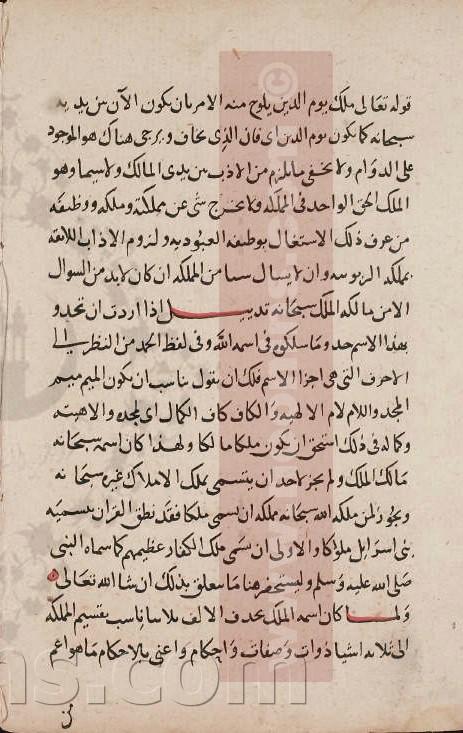 قوله تعالى ملك يوم الدين يلوح منه الامر بان يكون الآن بين يديه
سبحانه كما يكون يوم الدين اي فان الذي يخاف ويرجى هناك هو الموجود
على الدوام ولا يخفى ما يلزم من الادب بين يدى المالك ولا سيما وهو
الملك الحق الواحد في المملكة فلا يخرج شى عن مملكته وملكه ووظيفة
من عرف ذلك الاستغال بوظيفة العبودية ولزوم الاداب اللائقة
بمملكة الربوبية وان لا يسال شيا من المملكة ان كان لا بد من السوال
الا من مالكه الملك سبحانه تذييل اذا اردت ان تحدو
بهذا الاسم حدو ما سلكوه في اسمه الله وفى لفظ الحمد من النظر الى
الاحرف التى هى اجزا الاسم فلك ان تقول يناسب ان يكون الميم ميم
المجد واللام لام الالهية والكاف كاف الكمال اي لمجده والاهيته
وكماله في ذلك استحق ان يكون ملكا مالكا ولهذا كان اسمه سبحانه
مالك الملك ولم يجز لاحد ان يتسمى بملك الاملاك غيره سبحانه
ويجوز لمن ملكه الله سبحانه مملكة ان يسمى ملكا فقد نطق القران بتسميه
بنى اسرايل ملوكا والاولى ان يسمى ملك الكفار عظيمهم كما سماه النبى
صلى الله عليه وسلم وليستحضر هنا ما يتعلق بذلك ان شا الله تعالى
ولما كان اسمه الملك بحذف الالف ثلاثيا ناسب تقسيم المملكة
الى ثلاثة اشيا ذوات وصفات واحكام واعنى بالاحكام ما هو اعم
من